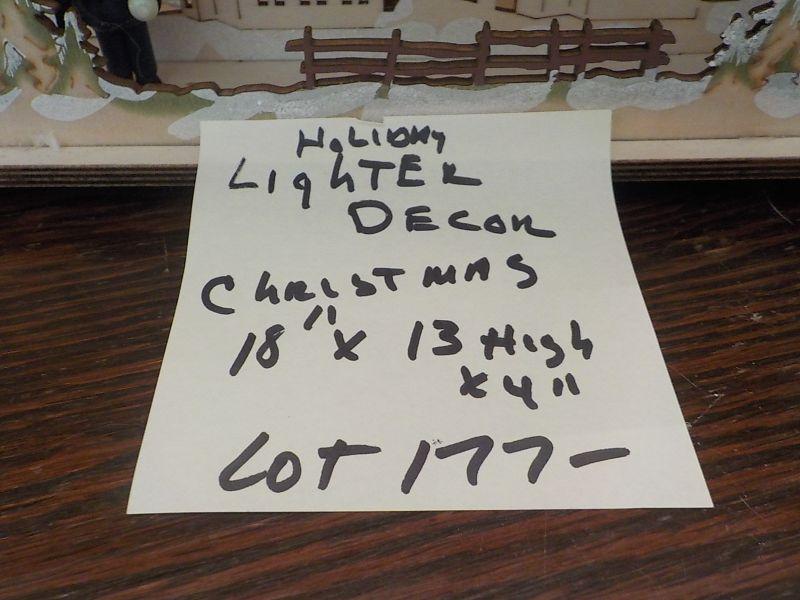 HOLIDAY
LighTER
DECOR
ChRISTMAS
18" x 13 High
x 4"
LOT 177-